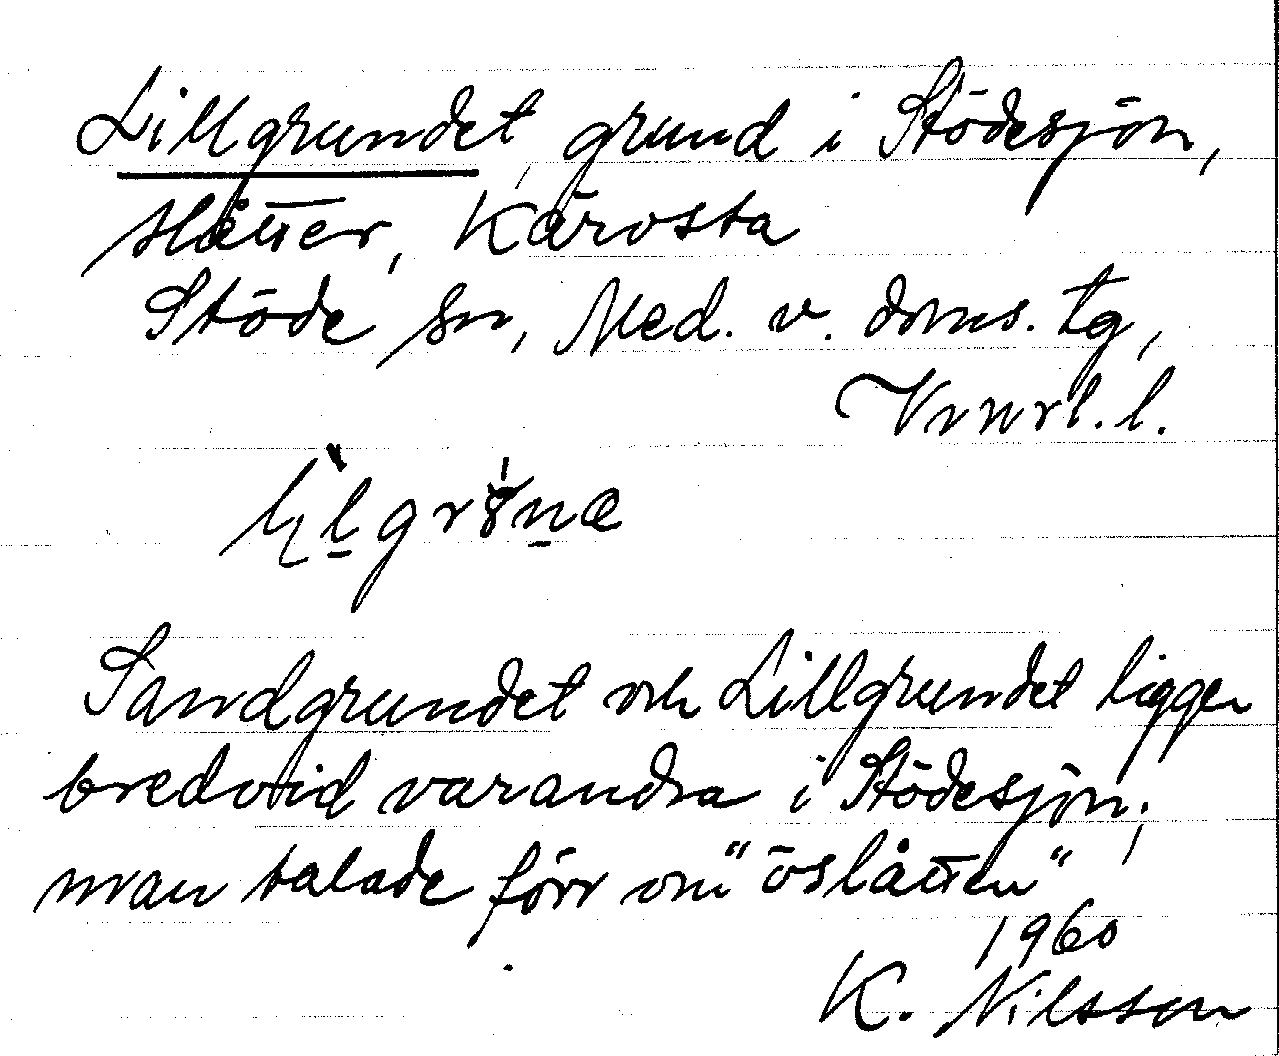 Lillgrundet, grund i Stödesjön,
slåtter, Kärvsta
Stöde sn, Med. v. doms. tg,
Vnrl. l.
Sandgrundet och Lillgrundet ligger
bredvid varandra i Stödesjön;
man talade förr om "öslåtten"
1960
K. Nilsson